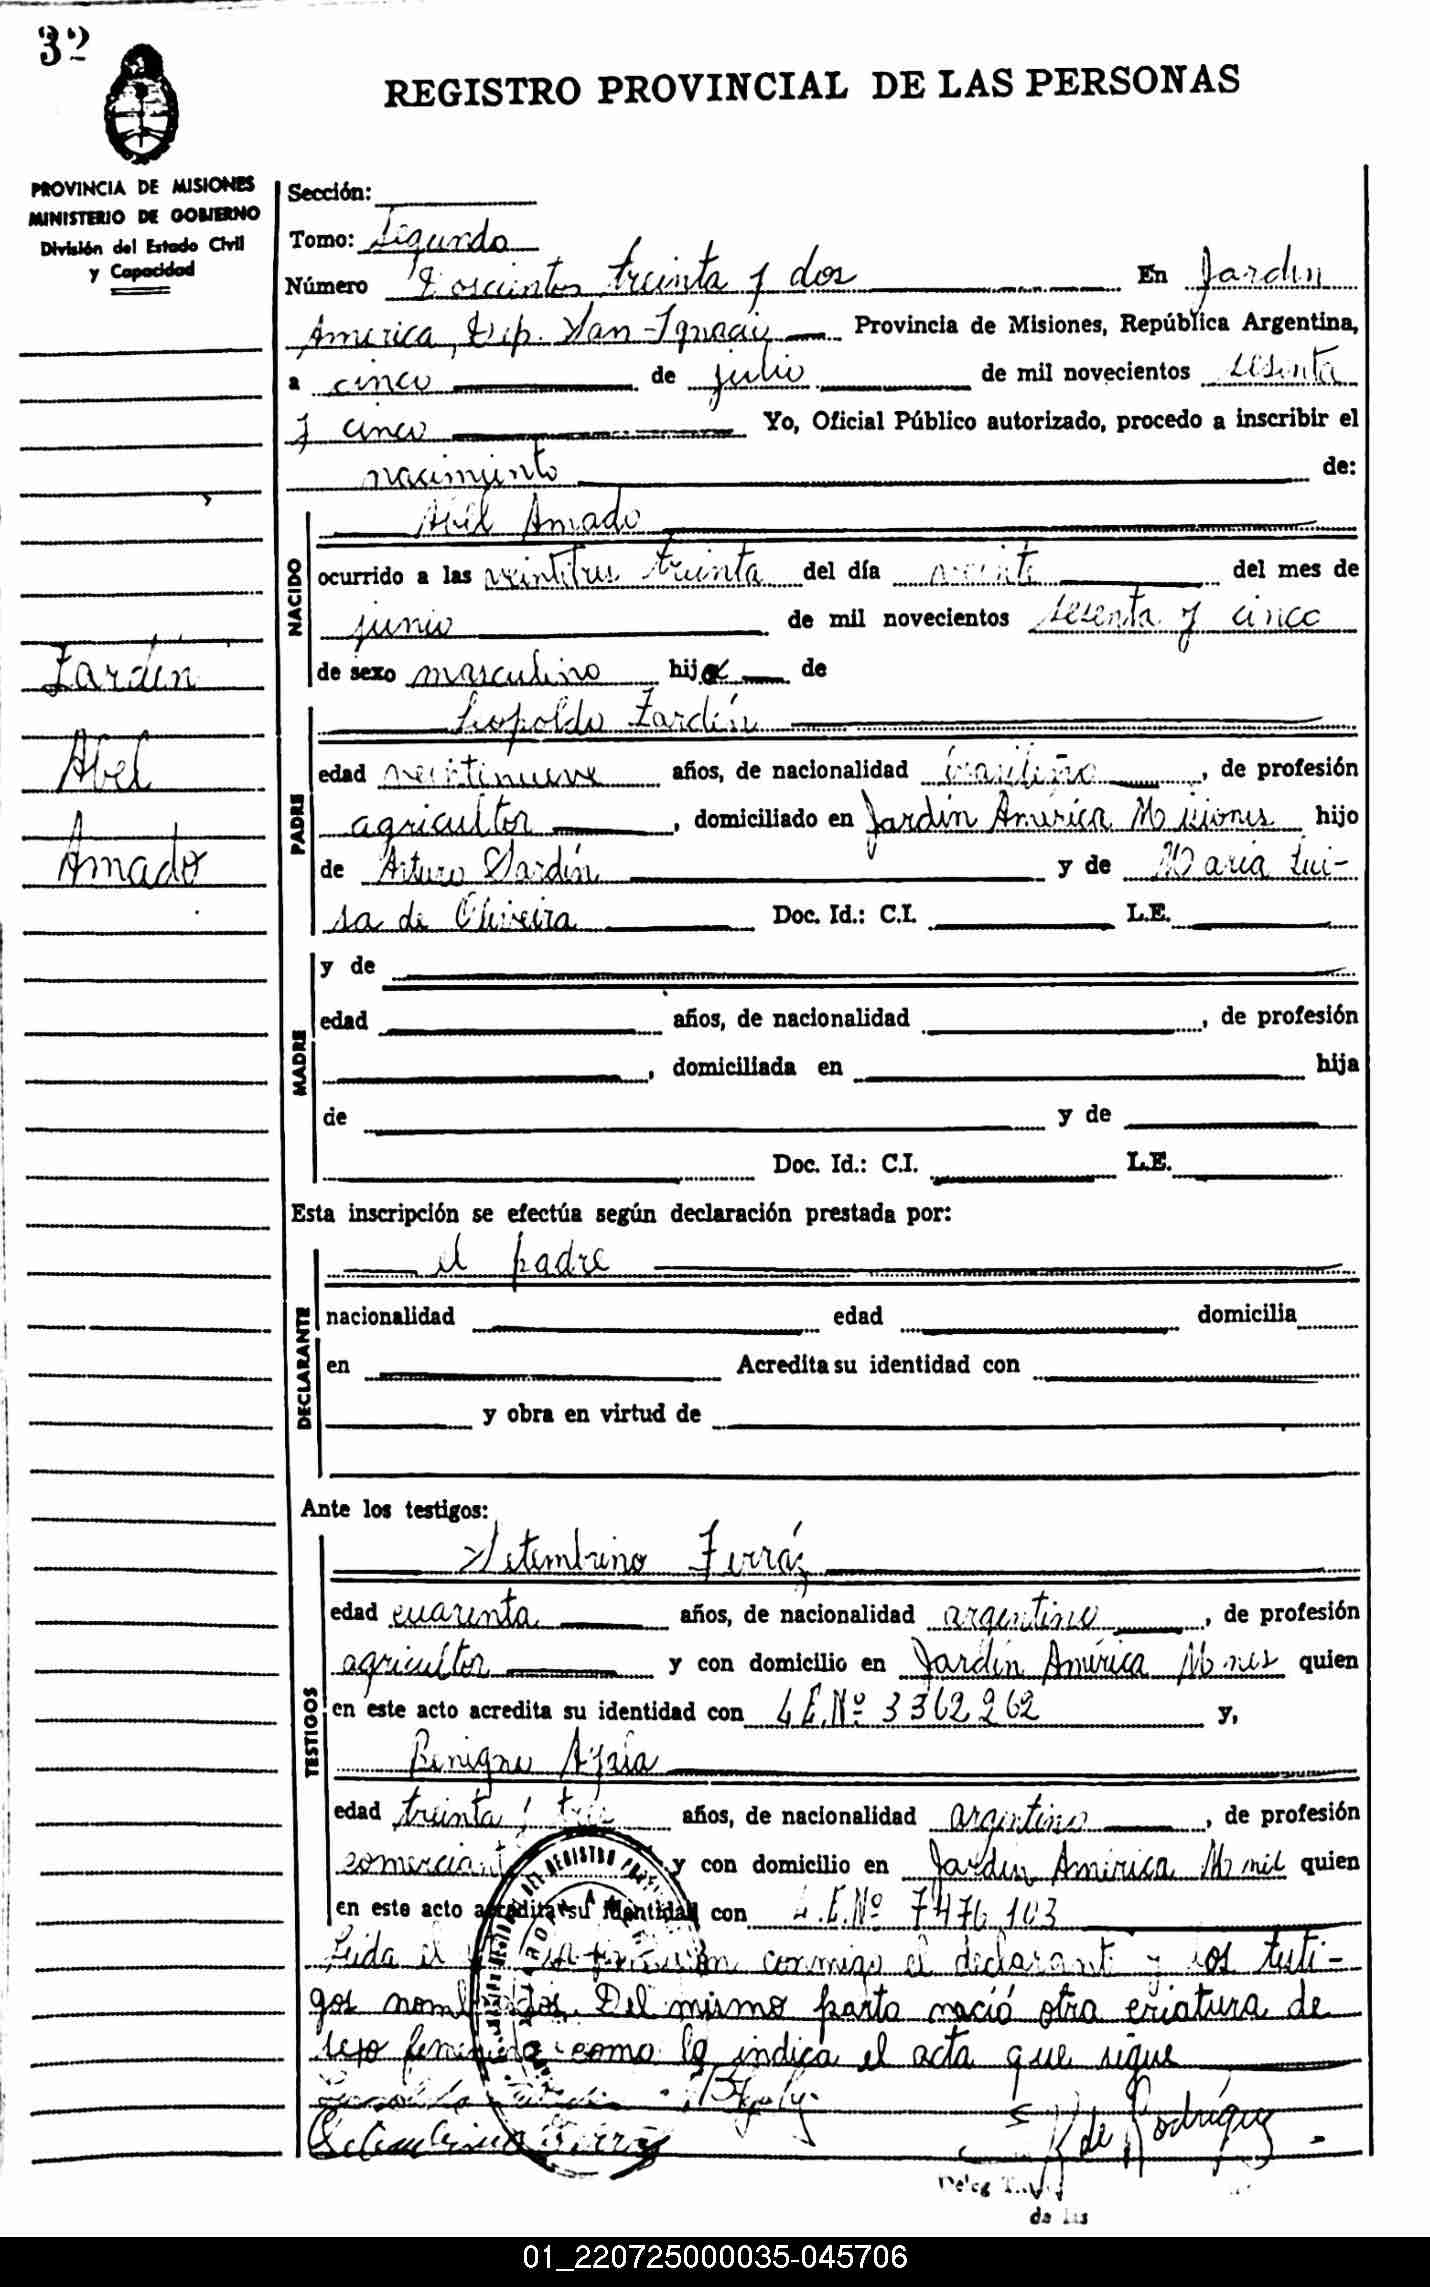 3º
REGISTRO PROVINCIAL DE LAS PERSONAS
PROVINCIA DE MISIONES
MINISTERIO DE GOBIERNO
División del Estado Civil
y Capacidad
Sección:
Tomo: Segundo
Número Doscientos treinta y dos En Jardin
America, Dep. San Ignacio Provincia de Misiones, República Argentina,
a cinco de julio de mil novecientos sesenta
y cinco Yo, Oficial Público autorizado, procedo a inscribir el
nacimiento de:
Abel Amado
NACIDO
ocurrido a las veintitres treinta del día veinte del mes de
junio de mil novecientos sesenta y cinco
de sexo masculino hijo de
Zardín
Abel
Amado
PADRE
Leopoldo Zardín
edad veintinueve años, de nacionalidad brasileño, de profesión
agricultor, domiciliado en Jardín América Misiones hijo
de Arturo Zardín y de Maria Lui-
sa de Oliveira Doc. Id.: C.I. L.E.
MADRE
y de
edad años, de nacionalidad , de profesión
, domiciliada en hija
de y de
Doc. Id.: C.I. L.E.
Esta inscripción se efectúa según declaración prestada por:
DECLARANTE
el padre
nacionalidad edad domicilia
en Acredita su identidad con
y obra en virtud de
Ante los testigos:
TESTIGOS
Setembrino Ferráz
edad cuarenta años, de nacionalidad argentino, de profesión
agricultor y con domicilio en Jardín América Mnes quien
en este acto acredita su identidad con L.E.Nº 3362262 y,
Benigno Ayala
edad treinta y tres años, de nacionalidad argentino, de profesión
comerciante y con domicilio en Jardin America quien
en este acto acredita su identidad con L.E.Nº 7476103
Leida el conmigo el declarante y los testi-
gos nombrados. Del mismo parto nació otra criatura de
sexo femenino como lo indica el acta que sigue
Setembrino Ferraz de Rodríguez
Deleg
de las
01_220725000035-045706